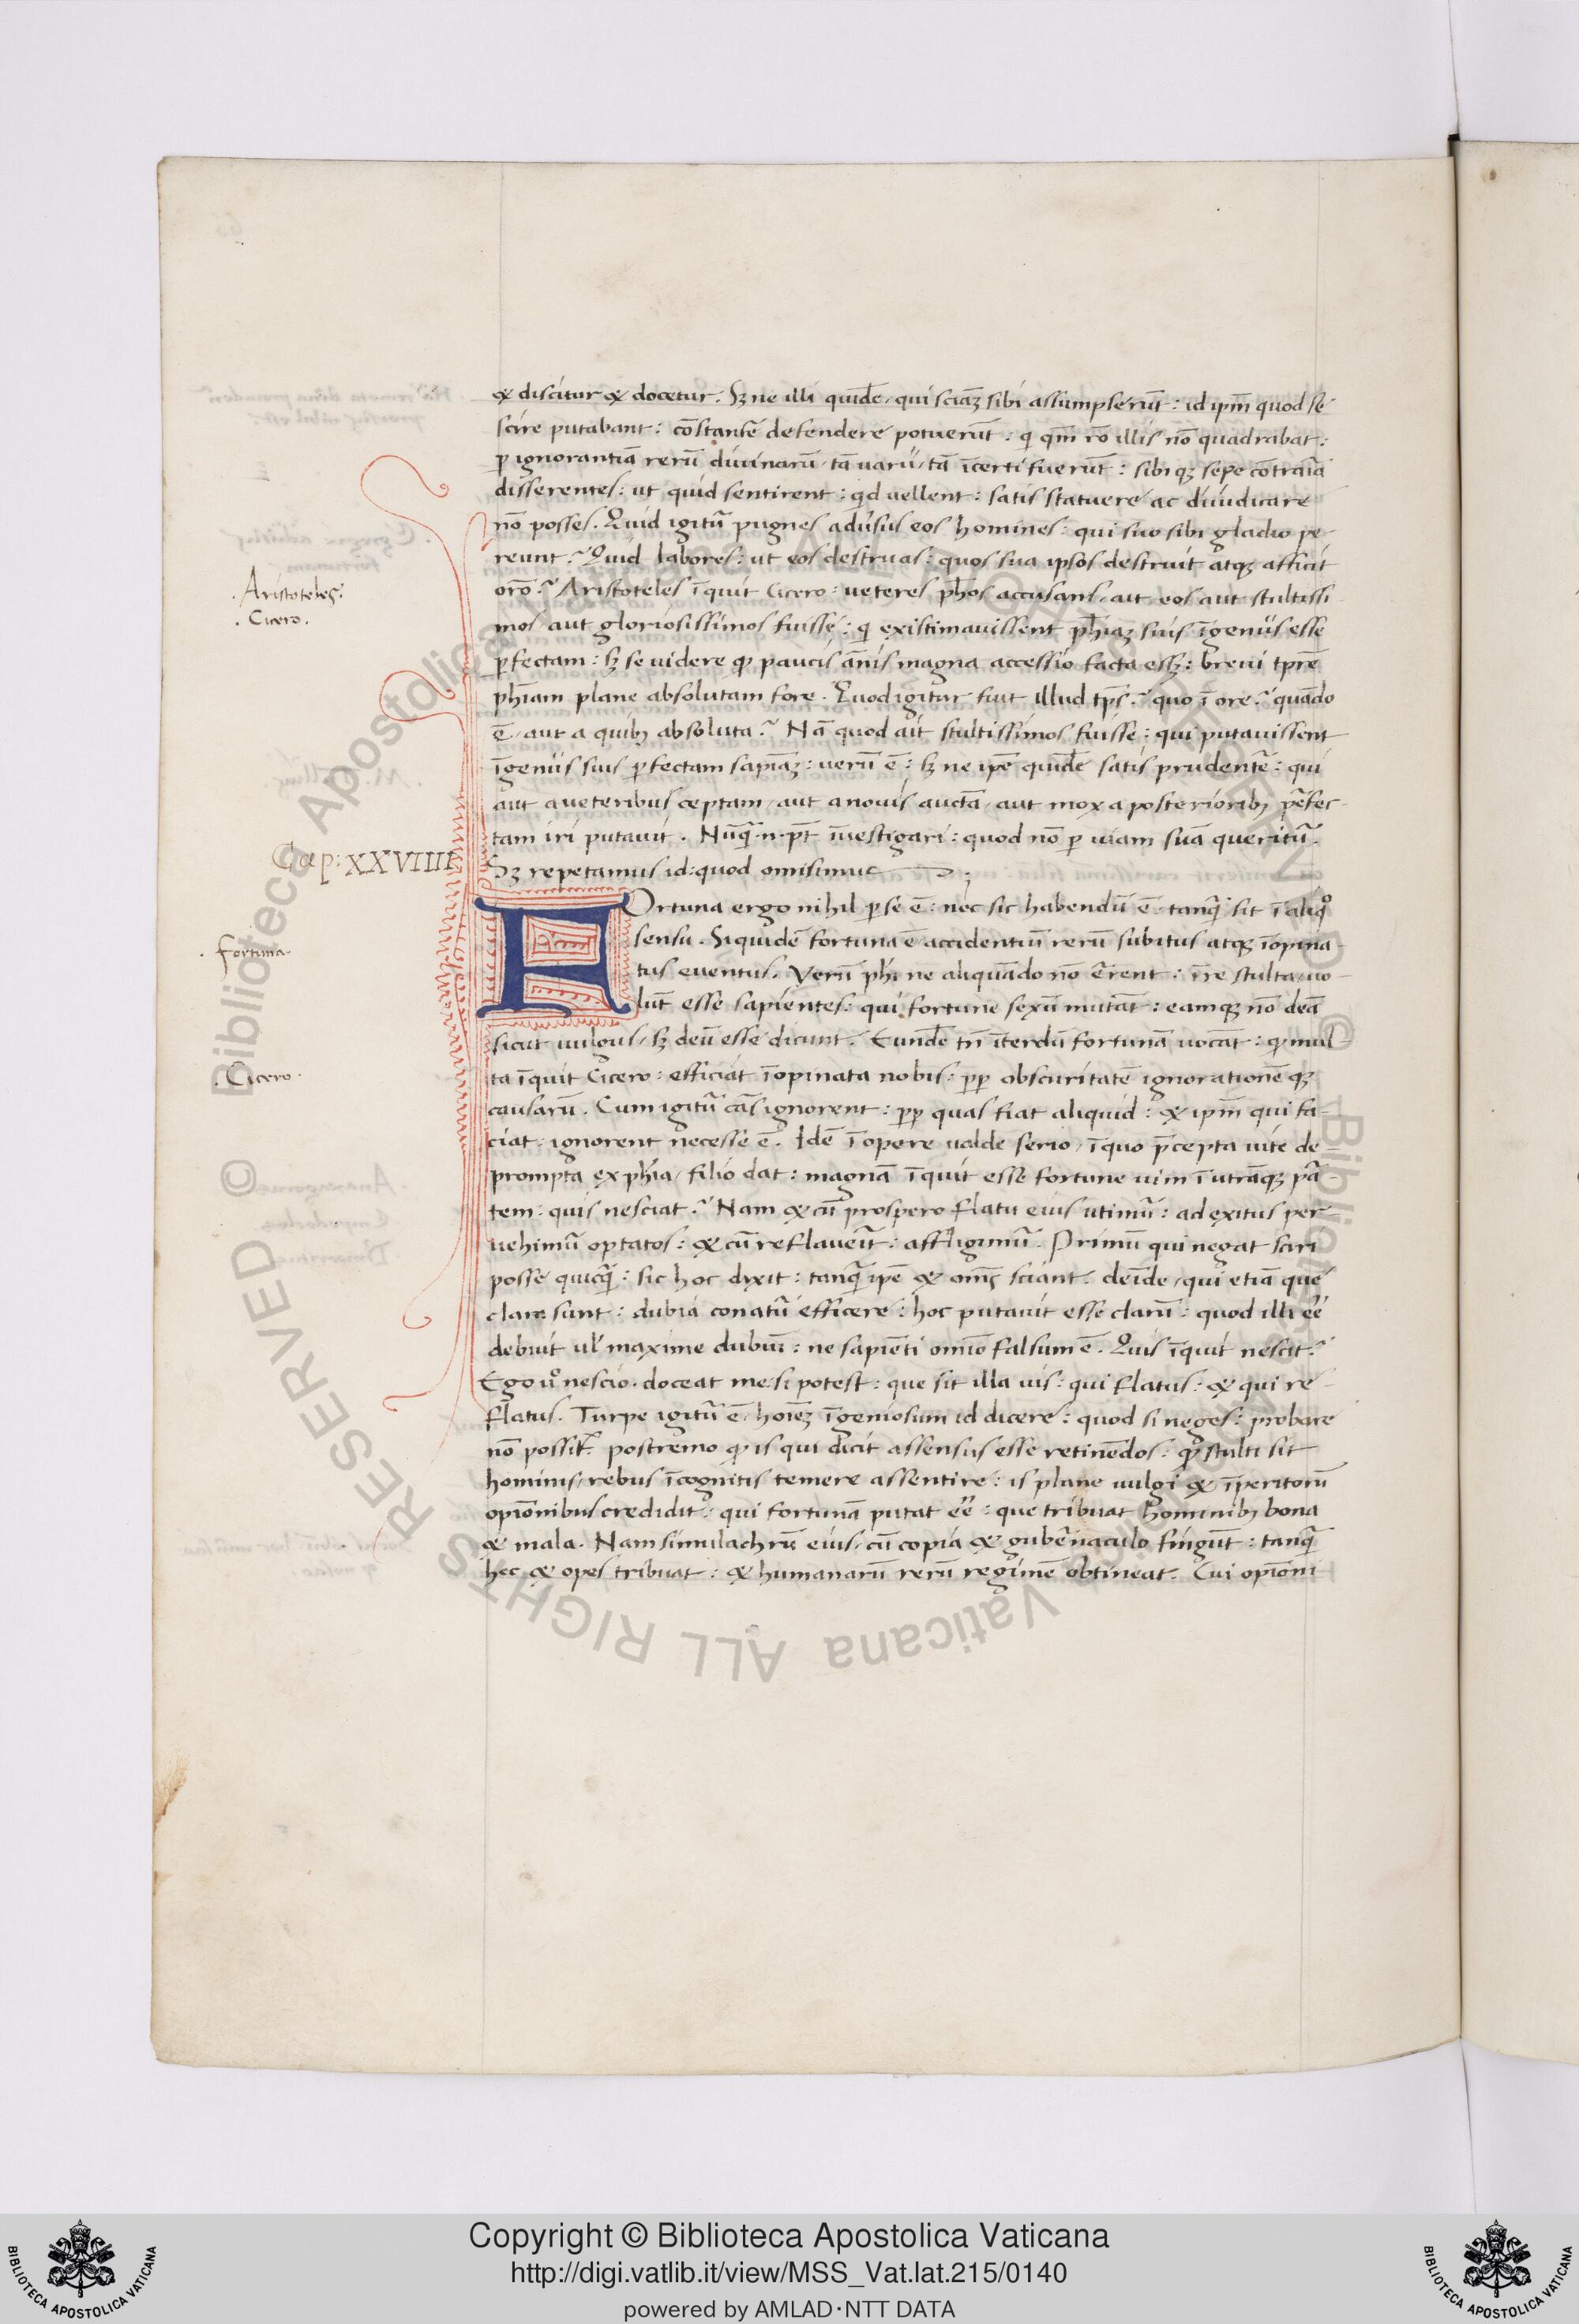 & discitur & docetur. Sꝫ ne illi quidē / qui sciāꝫ sibi assumpserūt : id ipm̄ quod se
scire putabant : cōstantē defendere potuerūt : q qm̄ rō illis nō quadrabat :
ꝑ ignorantiā rerū diuinarū / tā uarii / tā īcerti fuerūt : sibi qꝫ sepe cōtraria
disserentes : ut quid sentirent : qd uellent : satis statuere ac diiudicare
nō posses. Quid igitū pugnes aduersus eos homines : qui suo sibi gladio pe
reunt? Quid labores : ut eos destruas : quos sua ipsos destruit atqꝫ afficit
orō? Aristoteles īquit Cicero : ueteres ph̄os accusans / ait eos aut stultissi
mos aut gloriosissimos fuisse : q existimauissent ph̄iaꝫ suis īgeniis esse
ꝑfectam : sꝫ se uidere ꝙ paucis ānis magna accessio facta essꝫ : breui tpre
ph̄iam plane absolutam fore. Quod igitur fuit illud tps? quo ī ore? quādo
ē / aut a quibꝫ absoluta? Nā quod ait stultissimos fuisse : qui putauissent
īgeniis suis ꝑfectam sapiāꝫ : uerū ē : sꝫ ne ipe quidē satis prudentē : qui
aut a ueteribus ceptam / aut a nouis auctā / aut mox a posterioribꝫ ꝑfec-
tam iri putauit. Nūq̄ .n. pt īuestigari : quod nō ꝑ uiam suā queritū.
Sꝫ repetamus id : quod omisimus
.Aristoteles.
.Cicero.
Cap: XXVIIII
FOrtuna ergo nihil ꝑ se ē : nec sic habendū ē / tanq̄ sit ī aliqͦ
sensu. Siquidē fortuna ē accidentiū rerū subitus atqꝫ īopina-
tus euentus. Verū ph̄i ne aliquādo nō errent : ī re stulta uo-
lūt esse sapientes : qui fortune sexū mutāt : eamqꝫ nō deā
sicut uulgus / sꝫ deū esse dicunt. Eundē tn̄ īterdū fortunā uocāt : ꝙ mul
ta īquit Cicero : efficiat īopinata nobis : ꝓp obscuritatē ignorationē qꝫ
causarū. Cum igitū cās ignorent : ꝓp quas fiat aliquid : & ipm̄ qui fa-
ciat / ignorent necesse ē. Idē ī opere ualde serio / ī quo p̄cepta uite de-
prompta ex ph̄ia / filio dat : magnā īquit esse fortune uim ī utrāqꝫ pā-
tem : quis nesciat? Nam & cū prospero flatu eius utimū : ad exitus per
uehimū optatos : & cū reflauerit : affligimū. Primū qui negat sciri
posse quicq̄ : sic hoc dixit : tanq̄ ipe & oms̄ sciant. deīde / qui etiā que
clara sunt : dubia conatū efficere : hoc putauit esse clarū : quod illi ēē
debuit ul' maxime dubiū : ne sapiēti omīo falsum ē. Quis īquit nescit?
Ego uͦ nescio. doceat me si potest : que sit illa uis : qui flatus : & qui re-
flatus. Turpe igitū ē / hoieꝫ īgeniosum id dicere : quod si neges : probare
nō possit. postremo ꝙ is qui dicit assensus esse retinēdos : ꝙ stulti sit
hominis / rebus īcognitis temere assentire : is plane uulgi & īperitorū
opiōnibus credidit : qui fortunā putat ēē : que tribuat hominibꝫ bona
& mala. Nam simulachrū eius / cū copia & gubernaculo fingūt : tanq̄
hec & opes tribuat : & humanarū rerū regimē obtineat. Cui opiōni
.fortuna.
.Cicero.
© Biblioteca Apostolica Vaticana ALL RIGHTS RESERVED
Copyright © Biblioteca Apostolica Vaticana
http://digi.vatlib.it/view/MSS_Vat.lat.215/0140
powered by AMLAD·NTT DATA
BIBLIOTECA APOSTOLICA VATICANA
BIBLIOTECA APOSTOLICA VATICANA